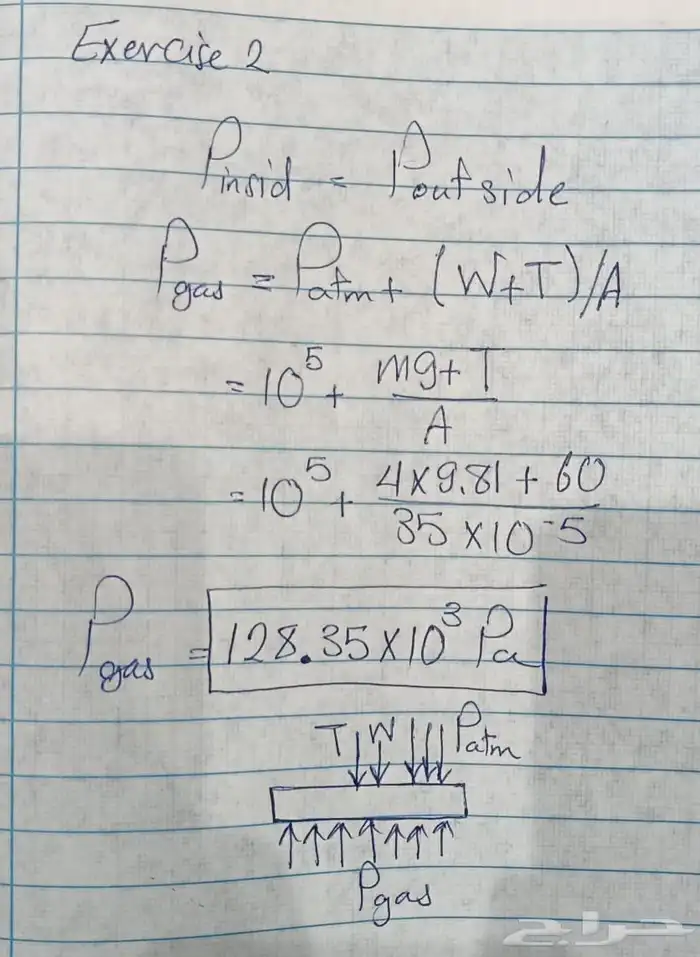 Exercise 2
Pinsid = Poutside
Pgas = Patm + (W+T)/A
= 10^5 + (mg + T)/A
= 10^5 + (4×9.81 + 60)/(35×10^-5)
Pgas = 128.35×10^3 Pa
T W Patm
Pgas
حراج